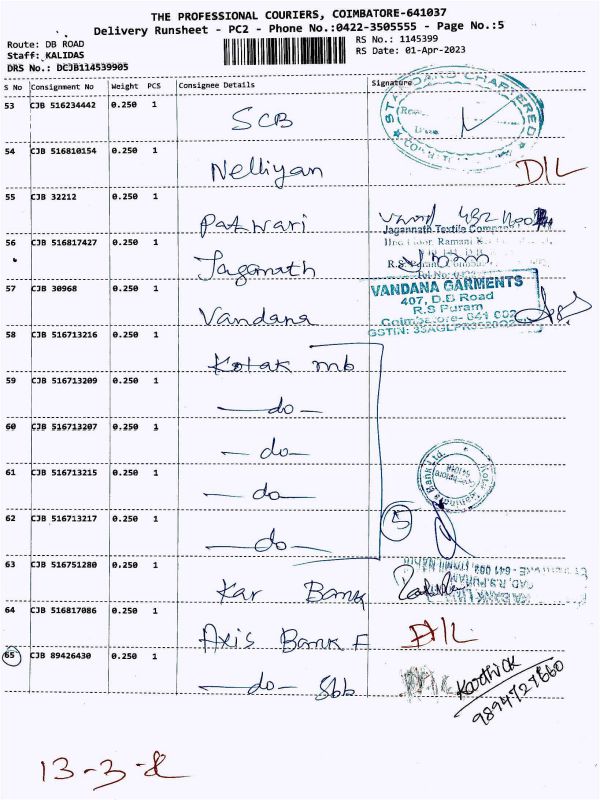 THE PROFESSIONAL COURIERS, COIMBATORE-641037
Delivery Runsheet - PC2 - Phone No.:0422-3505555 - Page No.:5
Route: DB ROAD RS No.: 1145399
Staff: KALIDAS RS Date: 01-Apr-2023
DRS No.: DCJB114539905
S No Consignment No Weight PCS Consignee Details Signature
53 CJB 516234442 0.250 1 SCB
STANDARD CHARTERED
54 CJB 516810154 0.250 1 Nelliyan D/L
55 CJB 32212 0.250 1 Patwari
Jagannath Textile Company
56 CJB 516817427 0.250 1 Jaganath
57 CJB 30968 0.250 1 Vandana
VANDANA GARMENTS
407, D.B Road
R.S Puram
Coimbatore- 641 002
58 CJB 516713216 0.250 1 Kotak mb
59 CJB 516713209 0.250 1 do
60 CJB 516713207 0.250 1 do
61 CJB 516713215 0.250 1 do
62 CJB 516713217 0.250 1 do 5
63 CJB 516751280 0.250 1 Kar Bank
64 CJB 516817086 0.250 1 Axis Bank F D/L
65 CJB 89426430 0.250 1 do Sbb
Karthick
9894727660